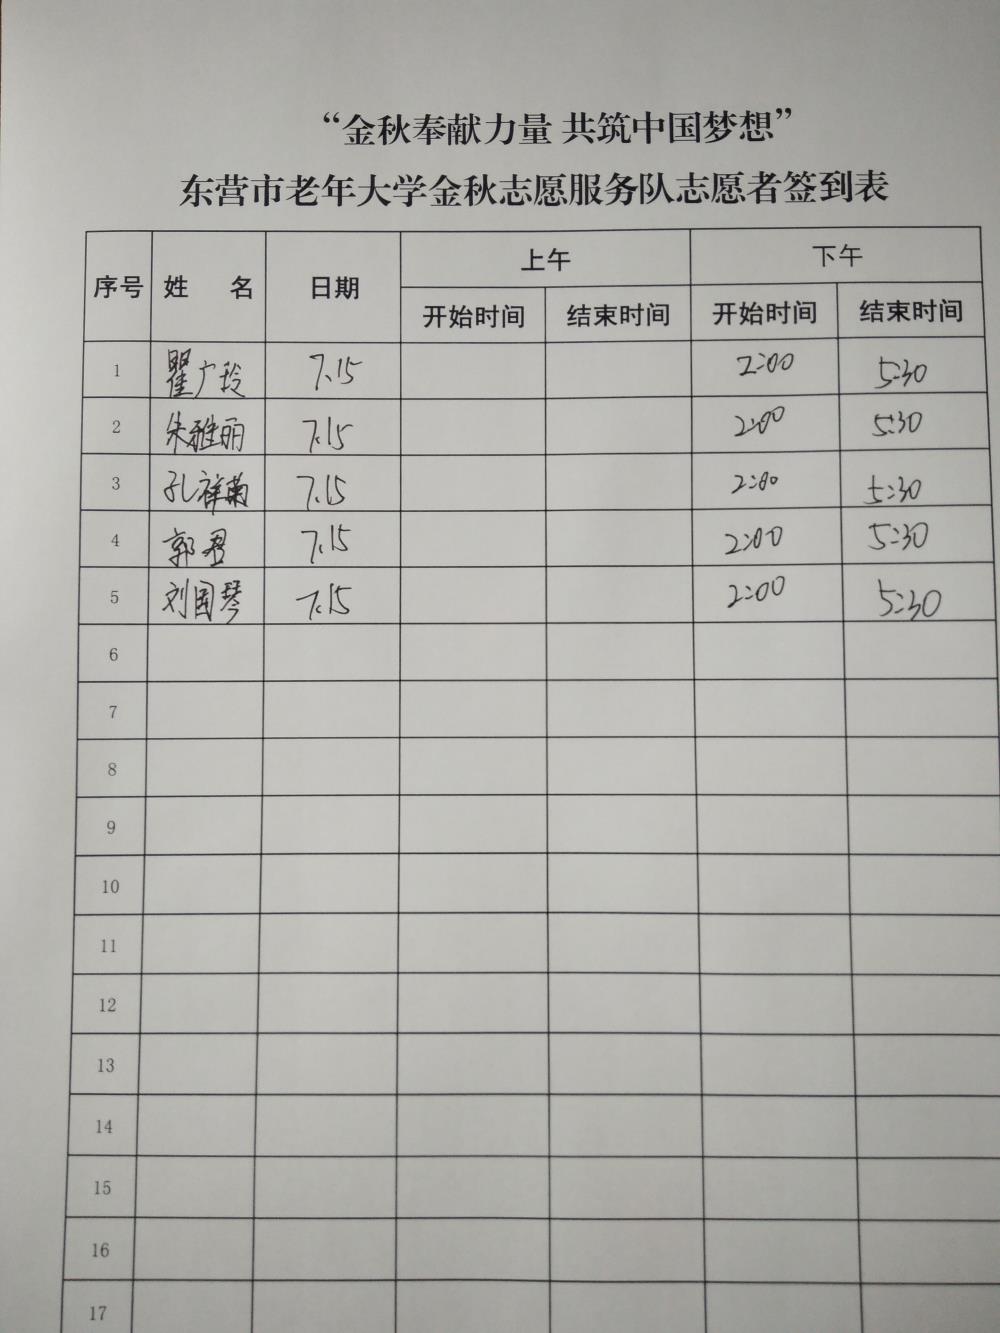 “金秋奉献力量 共筑中国梦想”
东营市老年大学金秋志愿服务队志愿者签到表
序号 姓 名 日期 上午 下午
开始时间 结束时间 开始时间 结束时间
1 瞿广玲 7.15 2:00 5:30
2 朱雅丽 7.15 2:00 5:30
3 孔祥菊 7.15 2:00 5:30
4 郭君 7.15 2:00 5:30
5 刘国琴 7.15 2:00 5:30
6
7
8
9
10
11
12
13
14
15
16
17